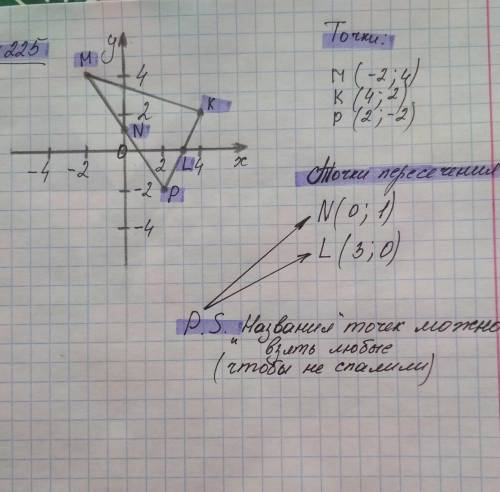 225
y
M
4
K
2
N
-4 -2 0 2 L 4 x
-2 P
-4
Точки:
M (-2; 4)
K (4; 2)
P (2; -2)
Точки пересечения
N(0; 1)
L (3; 0)
P.S. "Названия" точек можно
взять любые
(чтобы не спалили)